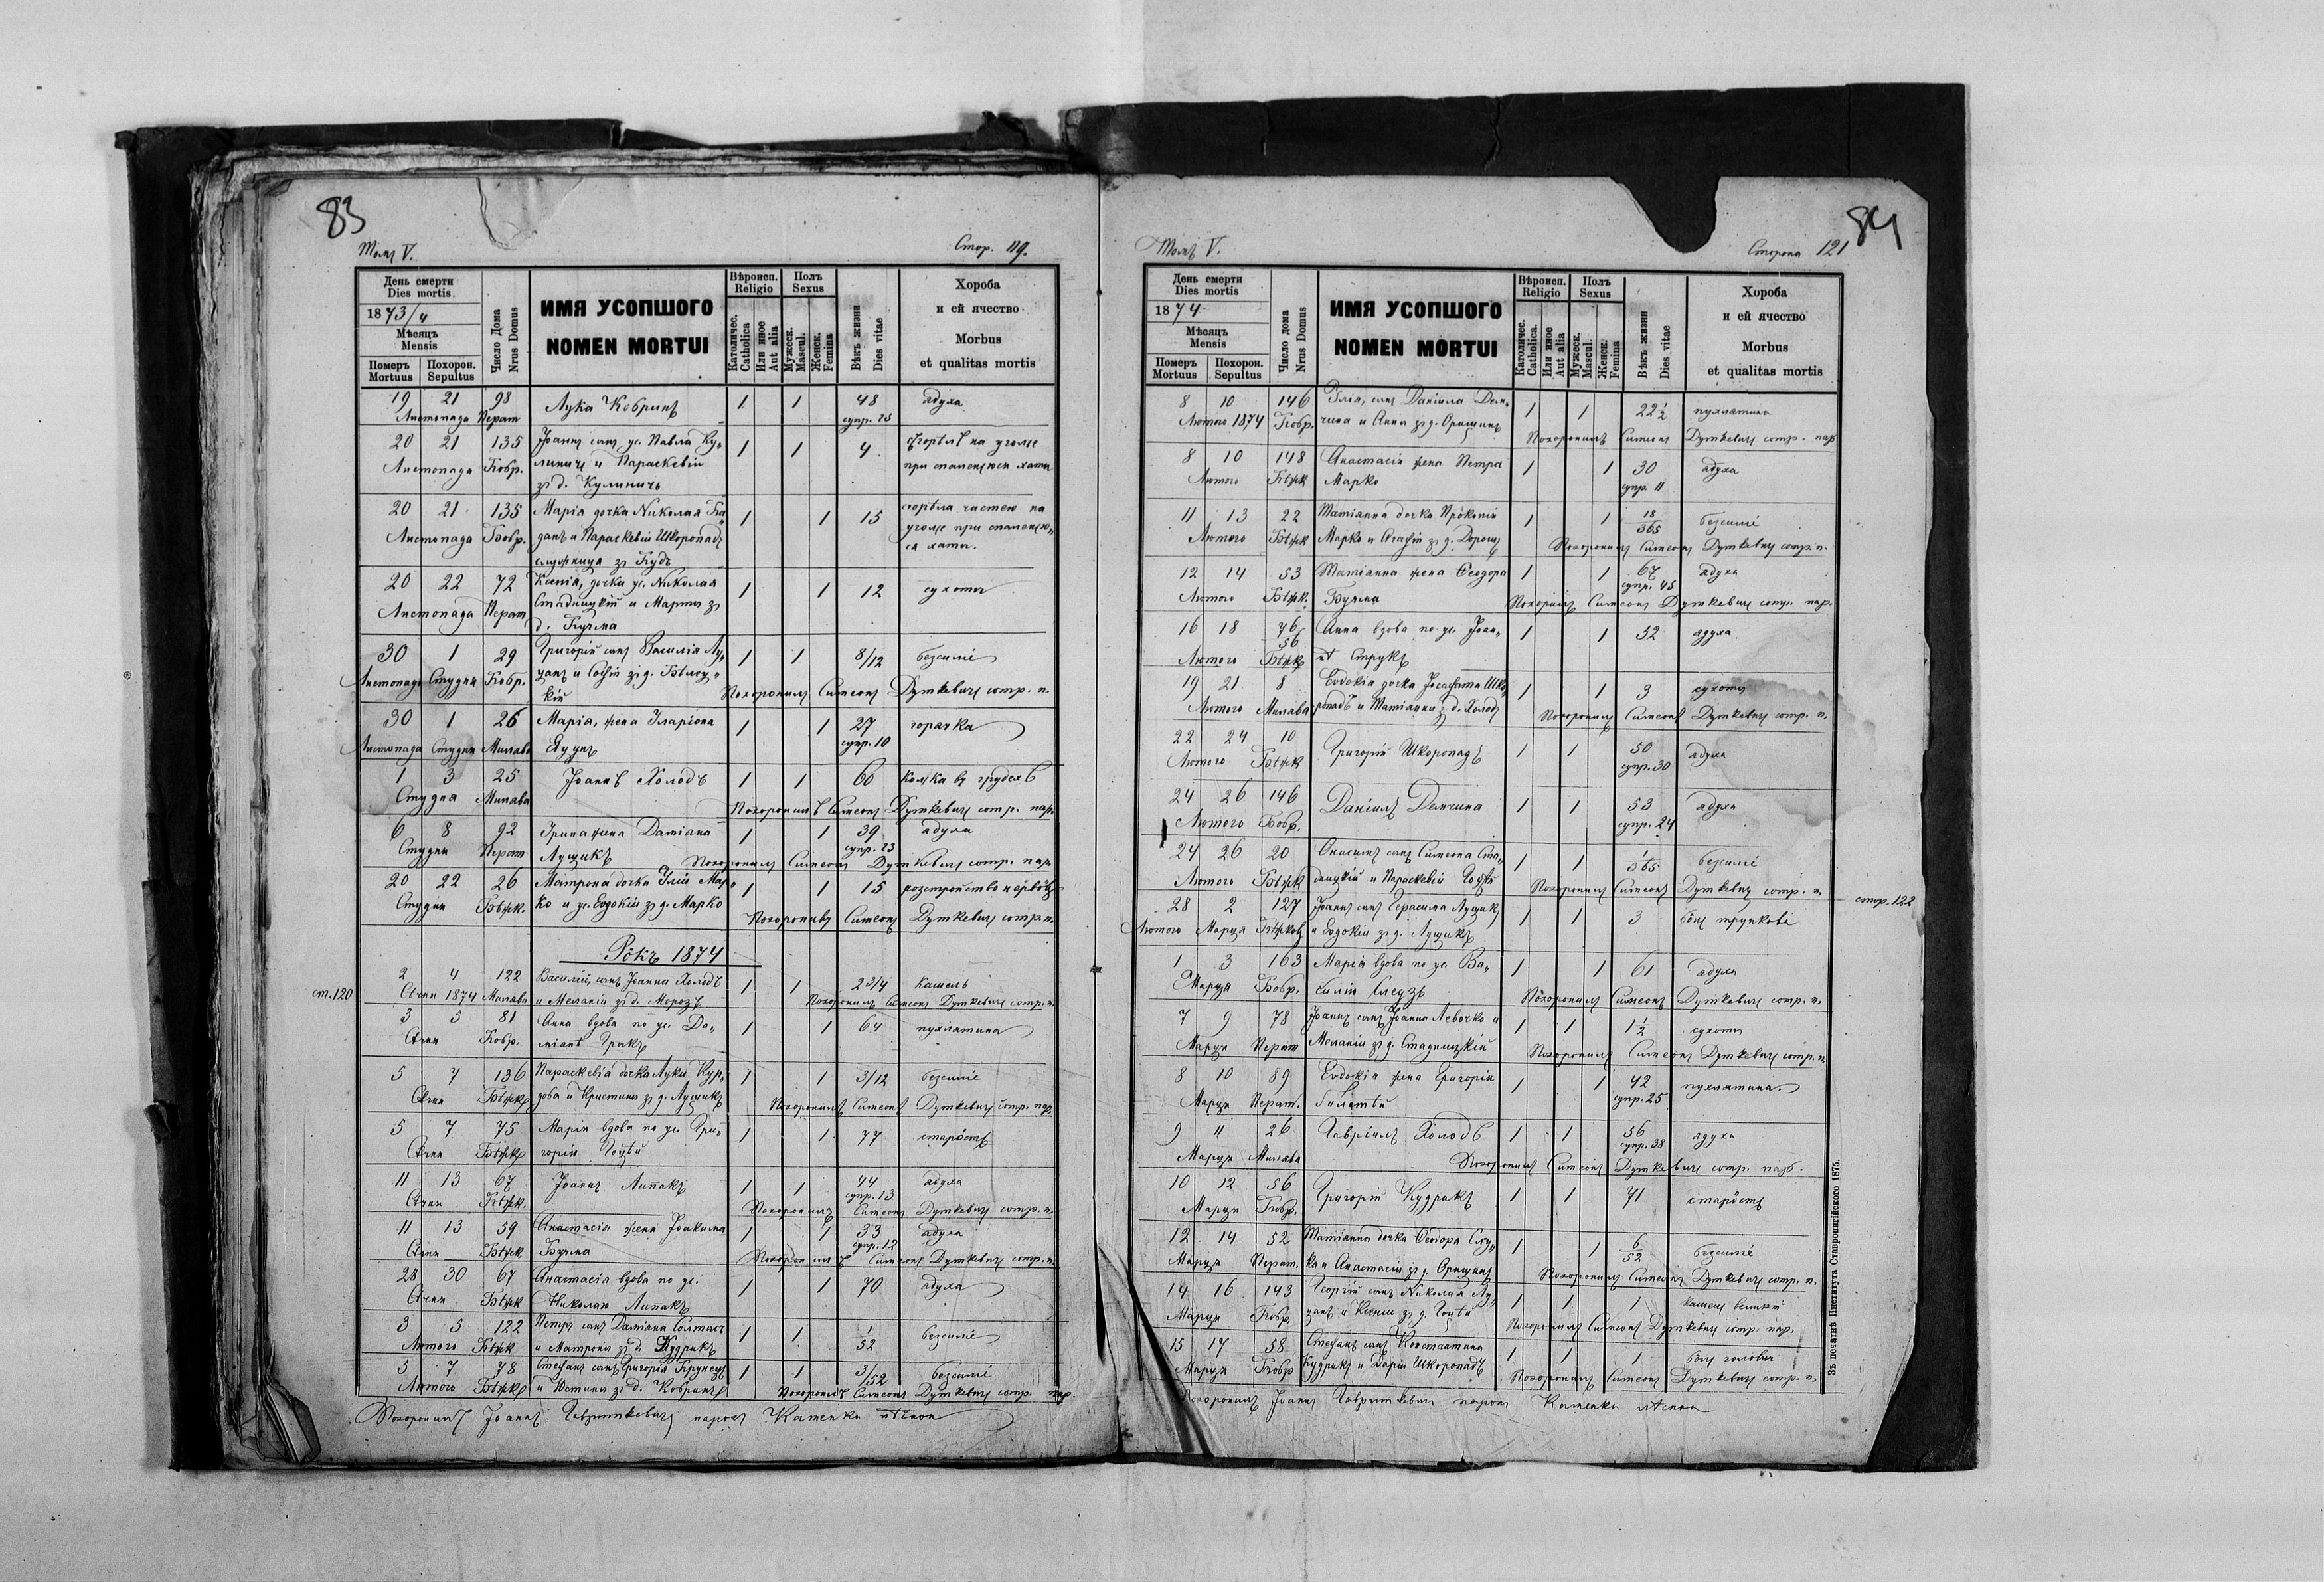 83
Томъ V.
Стор. 119.
День смерти
Dies mortis.
1873/4
Мѣсяцъ
Mensis
Померъ
Mortuus
Похорон.
Sepultus
Число Дома
Nrus Domus
ИМЯ УСОПШОГО
NOMEN MORTUI
Вѣроисп.
Religio
Католичес.
Catholica
Или иное
Aut alia
Полъ
Sexus
Мужеск.
Mascul.
Женск.
Femina
Вѣкъ жизни
Dies vitae
Хороба
и ей ячество
Morbus
et qualitas mortis
19 21 98 Лука Кобринъ 1 1 48 адуха
Листопада Перат супр. 25
20 21 135 Іоаннъ сынъ ус. Павла Ку„ 1 1 4 сгорѣлъ на уголь
Листопада Бобр. линичъ и Параскевіи при спаленью хаты
зъ д. Кулиничъ
20 21 135 Марія дочка Николая 1 1 15 сгорѣла частею на
Листопада Бобр. данъ и Параскевіи Шкоропадъ уголь при спаленью„
служница зъ ся хаты.
20 22 72 Ксенія, дочка ус. Николая 1 1 12 сухоты
Листопада Перат Стадницкій и Марты зъ
д. Бучма
30 1 29 Григорій сынъ Василія Лу„ 1 1 8/12 безсиліе
Листопада Студня Бобр. цанъ и Софіи зъ д.
кій Похоронилъ Симеонъ Дуткевичъ сотр. п.
30 1 26 Марія, жена Иларіона 1 1 27 горячка
Листопада Студня Милава супр. 10
1 3 25 Іоаннъ Холодъ 1 1 60 колька въ грудехъ
Студня Милава Похоронилъ Симеонъ Дуткевичъ сотр. пар.
6 8 92 Ирина жена Даміана 1 1 39 адуха
Студня Перат Лущикъ супр. 23
Похоронилъ Симеонъ Дуткевичъ сотр. пар
20 22 26 Матрона дочка Иліи Мар„ 1 1 15 розстройство нервôвъ
Студня Бѣжк. ко и ус. Евдокіи зъ д. Марко
Похоронивъ Симеонъ Дуткевичъ сотр. п.
Рôкъ 1874
ст. 120
2 4 122 Василій, сынъ Іоанна Холодъ 1 1 2 3/4 кашель
Сѣчня 1874 Милава и Меланіи зъ д. Морозъ Похоронилъ Симеонъ Дуткевичъ сотр. п.
3 5 81 Анна вдова по ус. Да„ 1 1 64 пухлятина
Сѣчня Бобр. міанѣ
5 7 136 Параскевія дочка Луки 1 1 3/12 безсиліе
Сѣчня Бѣжк и Кристины зъ д. Лущикъ Похоронилъ Симеонъ Дуткевичъ сотр. пар.
5 7 75 Марія вдова по ус. Гри„ 1 1 77 старôсть
Сѣчня Бѣжк горіи Гоцѣй
11 13 67 Іоаннъ Липакъ 1 1 44 адуха
Сѣчня Бѣжк. супр. 13
Похоронилъ Симеонъ Дуткевичъ сотр. п.
11 13 59 Анастасія жена Іоакима 1 1 33 адуха
Сѣчня Бѣжк. Бучма супр. 12
Похоронилъ Симеонъ Дуткевичъ сотр. п.
28 30 67 Анастасія вдова по ус. 1 1 70 адуха
Сѣчня Бѣжк Николаи Липакъ
3 5 122 Петръ сынъ Даміана Солтысъ 1 1 1/52 безсиліе
Лютого Бѣжк и Матроны зъ д. Кудрикъ
5 7 78 Стефанъ сынъ Григорія 1 1 3/52 безсиліе
Лютого Бѣжк и Юстины зъ д. Кобринъ Похоронилъ Симеонъ Дуткевичъ сотр. пар.
Похоронилъ Іоаннъ Гавришкевичъ парохъ Каменки
84
Томъ V.
Сторона 121
День смерти
Dies mortis
1874
Мѣсяцъ
Mensis
Померъ
Mortuus
Похорон.
Sepultus
Число дома
Nrus Domus
ИМЯ УСОПШОГО
NOMEN MORTUI
Вѣроисп.
Religio
Католичес.
Catholica.
Или иное
Aut alia
Полъ
Sexus
Мужеск.
Mascul.
Женск.
Femina
Вѣкъ жизни
Dies vitae
Хороба
и ей ячество
Morbus
et qualitas mortis
8 10 146 Илія, сынъ Даніила Дем„ 1 1 22 1/2 пухлятина
Лютого 1874 Бобр. чина и Анны зъ д. Орищинъ
Похоронилъ Симеонъ Дуткевичъ сотр. пар
8 10 148 Анастасія жена Петра 1 1 30 адуха
Лютого Бѣжк Марко супр. 11
11 13 22 Татіанна дочка Прокопія 1 1 18/365 безсиліе
Лютого Бѣжк Марко и Агафіи зъ д. Дорошъ
Похоронилъ Симеонъ Дуткевичъ сотр. п.
12 14 53 Татіанна жена Феодора 1 1 67 адуха
Лютого Бѣжк. Бучма супр. 45
Похоронилъ Симеонъ Дуткевичъ сотр. пар.
16 18 76 Анна вдова по ус. Іоан„ 1 1 52 адуха
56
Лютого Бѣжк нѣ Струкъ
19 21 8 Евдокія дочка Іосафата Шко„ 1 1 3 сухоты
Лютого Милава ропадъ и Татіанны зъ д. Холодъ
Похоронилъ Симеонъ Дуткевичъ сотр. п.
22 24 10 Григорій Шкоропадъ 1 1 50 адуха
Лютого Бѣжк супр. 30
24 26 146 Даніилъ Демчина 1 1 53 адуха
Лютого Бобр. супр. 24
24 26 20 Онисимъ сынъ Симеона Ста„ 1 1 1/365 безсиліе
Лютого Бѣжк дницкій и Параскевіи Гоцѣй
Похоронилъ Симеонъ Дуткевичъ сотр. п.
стор. 122
28 2 127 Іоаннъ сынъ Герасима Лущикъ 1 1 3 бôль
Лютого Марца Бѣжковъ и Евдокіи зъ д. Лущикъ
1 3 163 Марія вдова по ус. Ва„ 1 1 61 адуха
Марца Бобр. силіи
Похоронилъ Симеонъ Дуткевичъ сотр. п.
7 9 78 Іоаннъ сынъ Іоанна Левочко и 1 1 1 1/2 сухоты
Марца Перат Меланіи зъ д. Стадницкій
Похоронилъ Симеонъ Дуткевичъ сотр. п
8 10 89 Евдокія жена Григорія 1 1 42 пухлятина
Марца Перат. супр. 25
9 11 26 Гавріилъ Холодъ 1 1 56 адуха
Марца Милава супр. 38
Похоронилъ Симеонъ Дуткевичъ сотр. пар.
10 12 56 Григорій Кудрикъ 1 1 71 старôсть
Марца Бобр.
12 14 52 Татіанна дочка Феодора 1 1 6/52 безсиліе
Марца Перат. ка и Анастасіи зъ д. Орищинъ
Похоронилъ Симеонъ Дуткевичъ сотр. п.
14 16 143 Георгій сынъ Николая Лу„ 1 1 1 кашель
Марца Бобр. цанъ и Ксеніи зъ д. Гоцѣй
Похоронилъ Симеонъ Дуткевичъ сотр. пар.
15 17 58 Стефанъ сынъ Константина 1 1 1 бôль головы
Марца Бобр Кудрикъ и Даріи Шкоропадъ
Похоронилъ Симеонъ Дуткевичъ сотр. п.
Похоронилъ Іоаннъ Гавришкевичъ парохъ Каменки
Зъ печатнѣ Института Ставропигійского 1875.